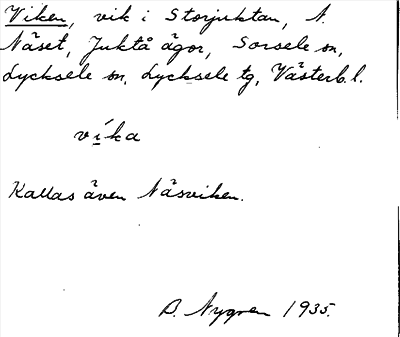 Viken, vik i Storjuktan, N.
Näset, Juktå ägor, Sorsele sn,
Lycksele sn, Lycksele tg, Västerb. l.
víka
Kallas även Näsviken.
B. Nygren 1935.